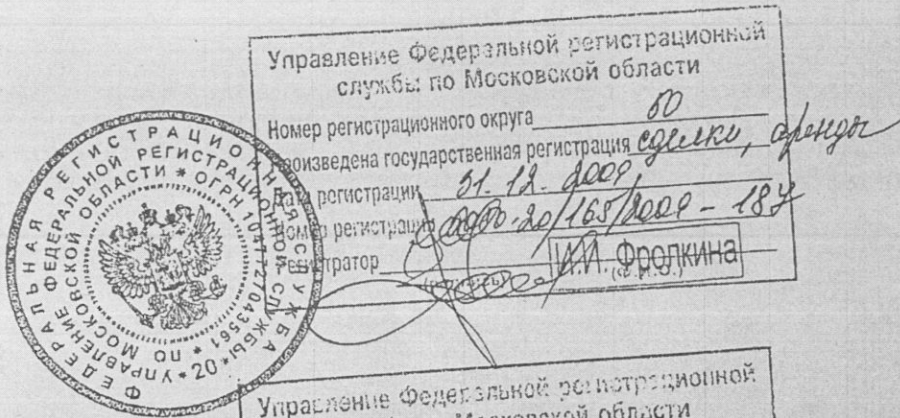 Управление Федеральной регистрационной
службы по Московской области
Номер регистрационного округа 50
Произведена государственная регистрация сделки, аренды
Дата регистрации 31.12.2009
Номер регистрации 20/165/2009-187
Регистратор И.И. Фролкина
(подпись) (Ф.И.О.)
ФЕДЕРАЛЬНАЯ РЕГИСТРАЦИОННАЯ СЛУЖБА
УПРАВЛЕНИЕ ФЕДЕРАЛЬНОЙ РЕГИСТРАЦИОННОЙ СЛУЖБЫ
ПО МОСКОВСКОЙ ОБЛАСТИ * ОГРН 1047727043561 *
*20*
Управление Федеральной регистрационной
Московской области